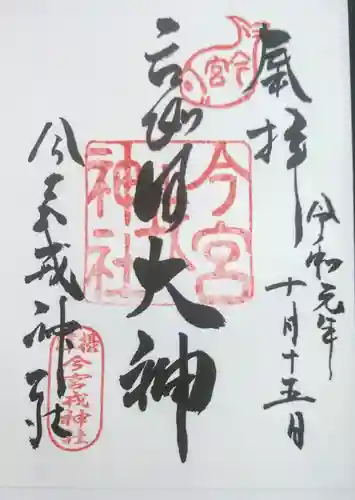 今宮
拝
令和元年
十月十五日
大神
今宮
戎
神社
今宮戎神社
今宮戎神社